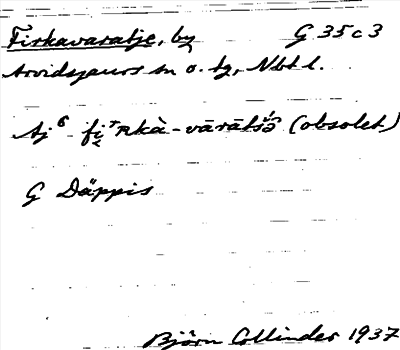 Firkavaratje, by G 35 c 3
Arvidsjaurs sn o. tg, Nbt l.
Aj⁶ fi̮ʳπkà-vārātšə̂ (obsolet)
G Däppis
Björn Collinder 1937